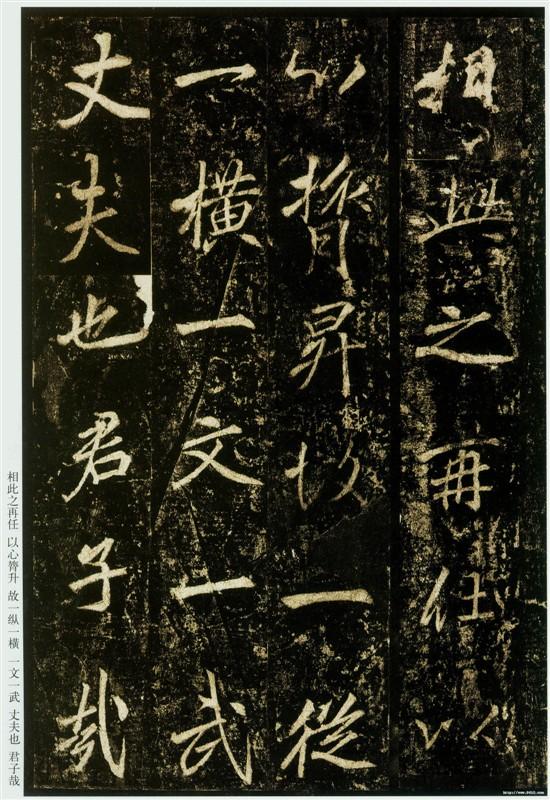 相之再任以
心膂昇故一從
一橫一文一武
丈夫也君子哉
相此之再任 以心膂升 故一纵一横 一文一武 丈夫也 君子哉
http://www.9610.com